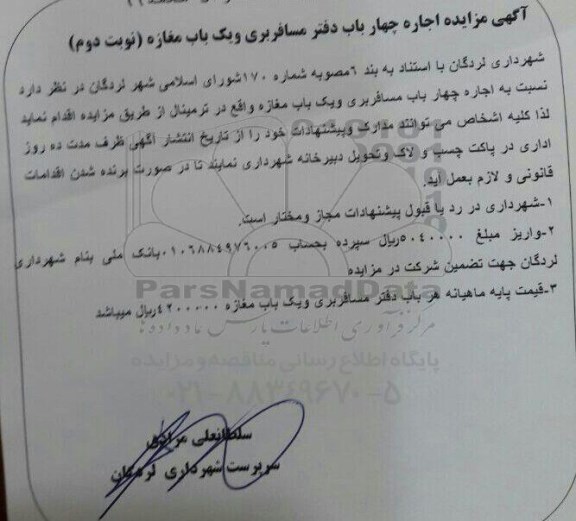 آگهی مزایده اجاره چهار باب دفتر مسافربری ویک باب مغازه (نوبت دوم)
شهرداری لردگان با استناد به بند ٦مصوبه شماره ۱۷۰شورای اسلامی شهر لردگان در نظر دارد
نسبت به اجاره چهار باب مسافربری ویک باب مغازه واقع در ترمینال از طریق مزایده اقدام نماید
لذا کلیه اشخاص می توانند مدارک وپیشنهادات خود را از تاریخ انتشار آگهی ظرف مدت ده روز
اداری در پاکت چسب و لاک وتحویل دبیرخانه شهرداری نمایند تا در صورت برنده شدن اقدامات
قانونی و لازم بعمل آید.
۱-شهرداری در رد یا قبول پیشنهادات مجاز ومختار است.
۲-واریز مبلغ ۵۰۴۰۰۰۰۰ریال سپرده بحساب ۰۱۰۶۸۸۴۹۷۶۰۰۵بانک ملی بنام شهرداری
لردگان جهت تضمین شرکت در مزایده
ParsNamadData
۳-قیمت پایه ماهیانه هر باب دفتر مسافربری ویک باب مغازه ۴۲۰۰۰۰۰ریال میباشد
مرکز فرآوری اطلاعات پارس نماد داده ها
پایگاه اطلاع رسانی مناقصه و مزایده
۰۲۱-۸۸۳۴۹۶۷۰-۵
سلطانعلی مرادی
سرپرست شهرداری لردگان